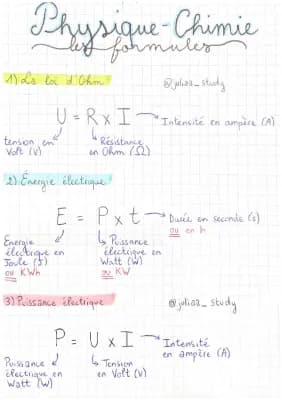 Physique-Chimie
les formules
1) La loi d'Ohm
@juliaa_study
U = R x I → Intensité en ampère (A)
tension en Volt (V)
Résistance en Ohm (Ω)
2) Énergie électrique
E = P x t → Durée en seconde (s)
ou en h
Énergie électrique en Joule (J)
ou KWh
Puissance électrique en Watt (W)
ou KW
3) Puissance électrique
@juliaa_study
P = U x I → Intensité en ampère (A)
Puissance électrique en Watt (W)
Tension en Volt (V)